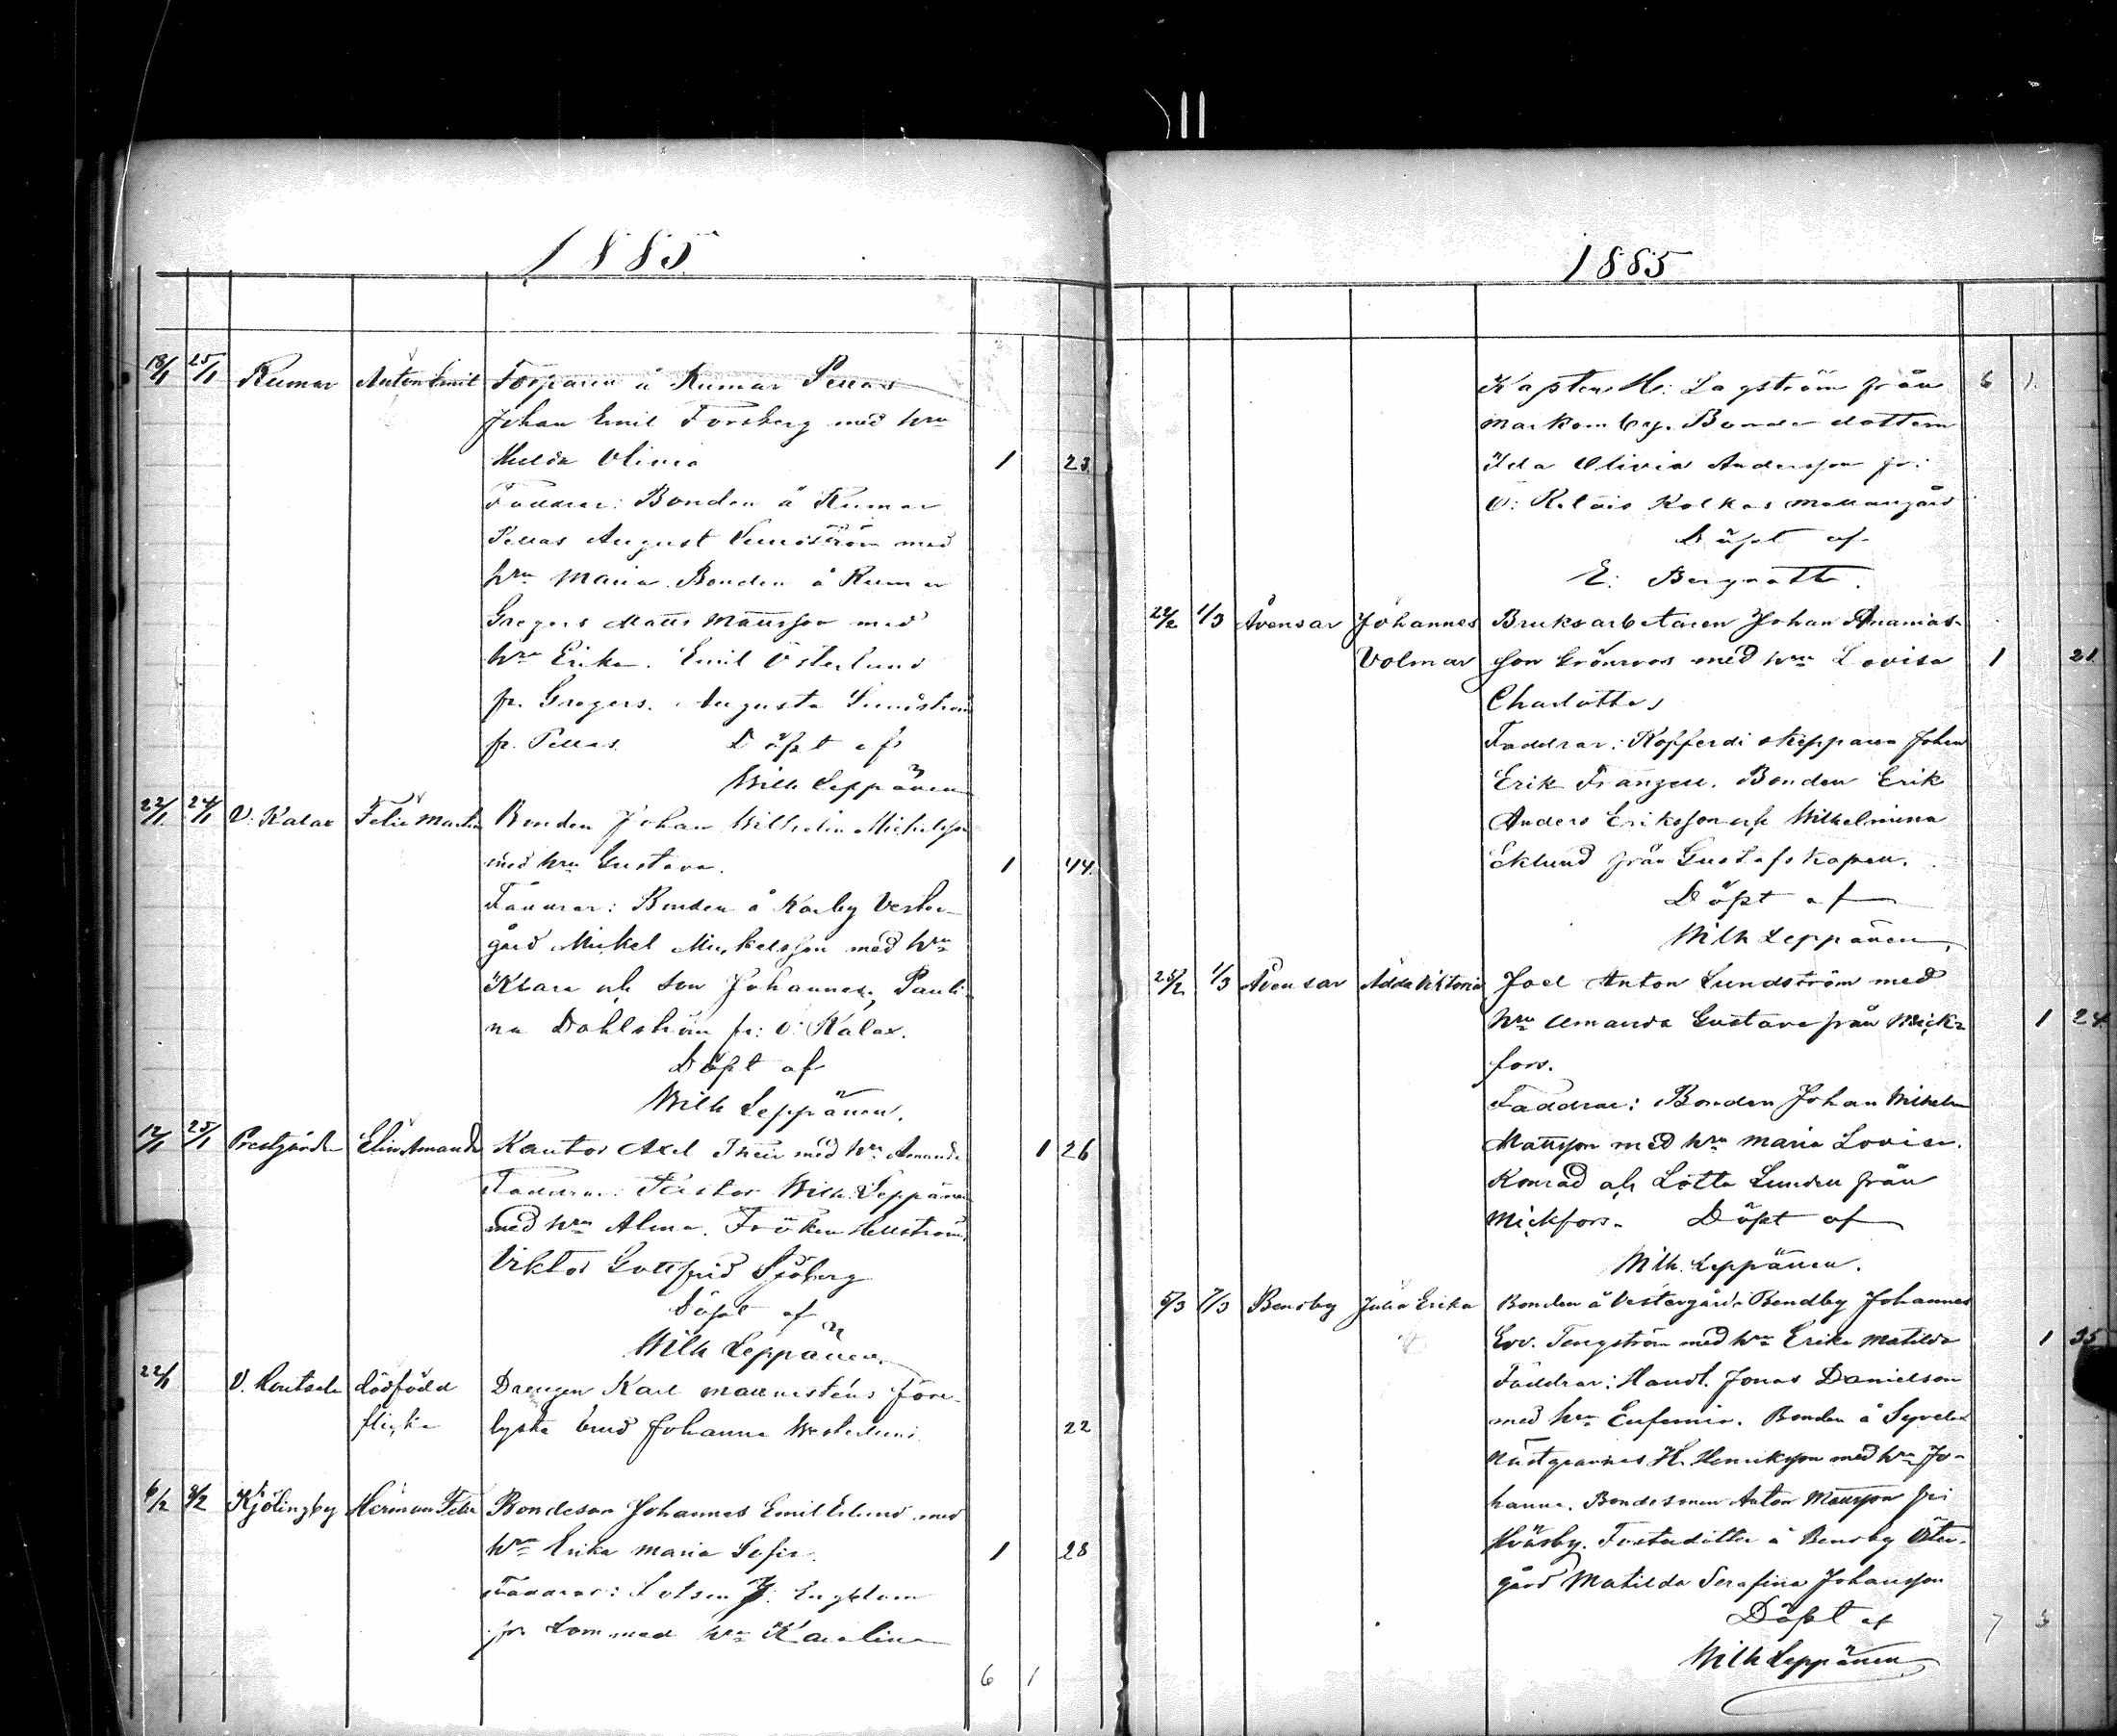 1885
18/1 25/1 Rumar Anton Emil Torparen å Rumar Pellas
Johan Emil Forsberg med hru
Hulda Olivia 1 23
Faddrar: Bonden å Rumar
Pellas August Sundström med
hru Maria. Bonden å Rumar
Gregers Matts Mattsson med
hru Erika. Emil Österlund
fr. Gregers. Augusta Sundström
fr. Pellas. Döpt af
Wilh Leppänen
22/1 24/1 V. Kalax Felix Martin Bonden Johan Wilhelm Michelsson
med hru Gustava. 1 44.
Faddrar: Bonden å Karby Vester-
gård Mickel Mickelsson med hru
Klara och son Johannes, Pauli-
na Dahlström fr: V: Kalax.
Döpt af
Wilh Leppänen.
12/1 25/1 Prestgården Elin Amanda Kantor Axel med hru Amanda 1 26
Faddrar: Pastor Wilh. Leppänen
med hru Alma. Fröken Hellström,
Viktor Gottfrid Sjöberg
Döpt af
Wilh Leppänen.
22/1 V. dödfödd Drengen Karl Mannsténs före-
flicka lysta brud Johanna Westerlund 22
6/2 8/2 Kjölingby Herman Felix Bondeson Johannes Emil Eklund med
hru Erika Maria Sofia. 1 28
Faddrar: Lotsen J. Engblom
fr. Lom med hru Karolina
6 1
1885
Kapten H: Lagström från 6 1
Markomby. Bonde dottern
Ida Olivia Andersson fr:
Ö: Retais Kolkas Mellangård
Döpt af
E: Bergroth.
22/2 1/3 Åvensar Johannes Bruksarbetaren Johan Ananias-
Volmar son Grönroos med hru Lovisa 1 21
Charlotta
Faddrar: Kofferdi skepparen Johan
Erik Franzell. Bonden Erik
Anders Eriksson och Wilhelmina
Eklund från Gustafs kapell.
Döpt af
Wilh Leppänen,
25/2 1/3 Åvensar Adda Viktoria Joel Anton Lundström med
hru Amanda Gustava från Mick- 1 24.
fors.
Faddrar: Bonden Johan Wilhelm
Mattsson med hru Maria Lovisa.
Konrad och Lotta Lunden från
Mickfors. Döpt af
Wilh. Leppänen.
5/3 7/3 Bensby Julia Erika Bonden å Vestergårds Bendby Johannes
Edv. Tengström med hru Erika Matilda 1 35
Faddrar: Handl. Jonas Danielson
med hru Eufemia. Bonden å Syvelax
Nästgrannas K. Henriksson med hru Jo-
hanna. Bondesonen Anton Mattsson frå
Hväsby. Fosterdotter å Bensby Öster-
gård Matilda Serafina Johansson
Döpt af 7 3
Wilh Leppänen